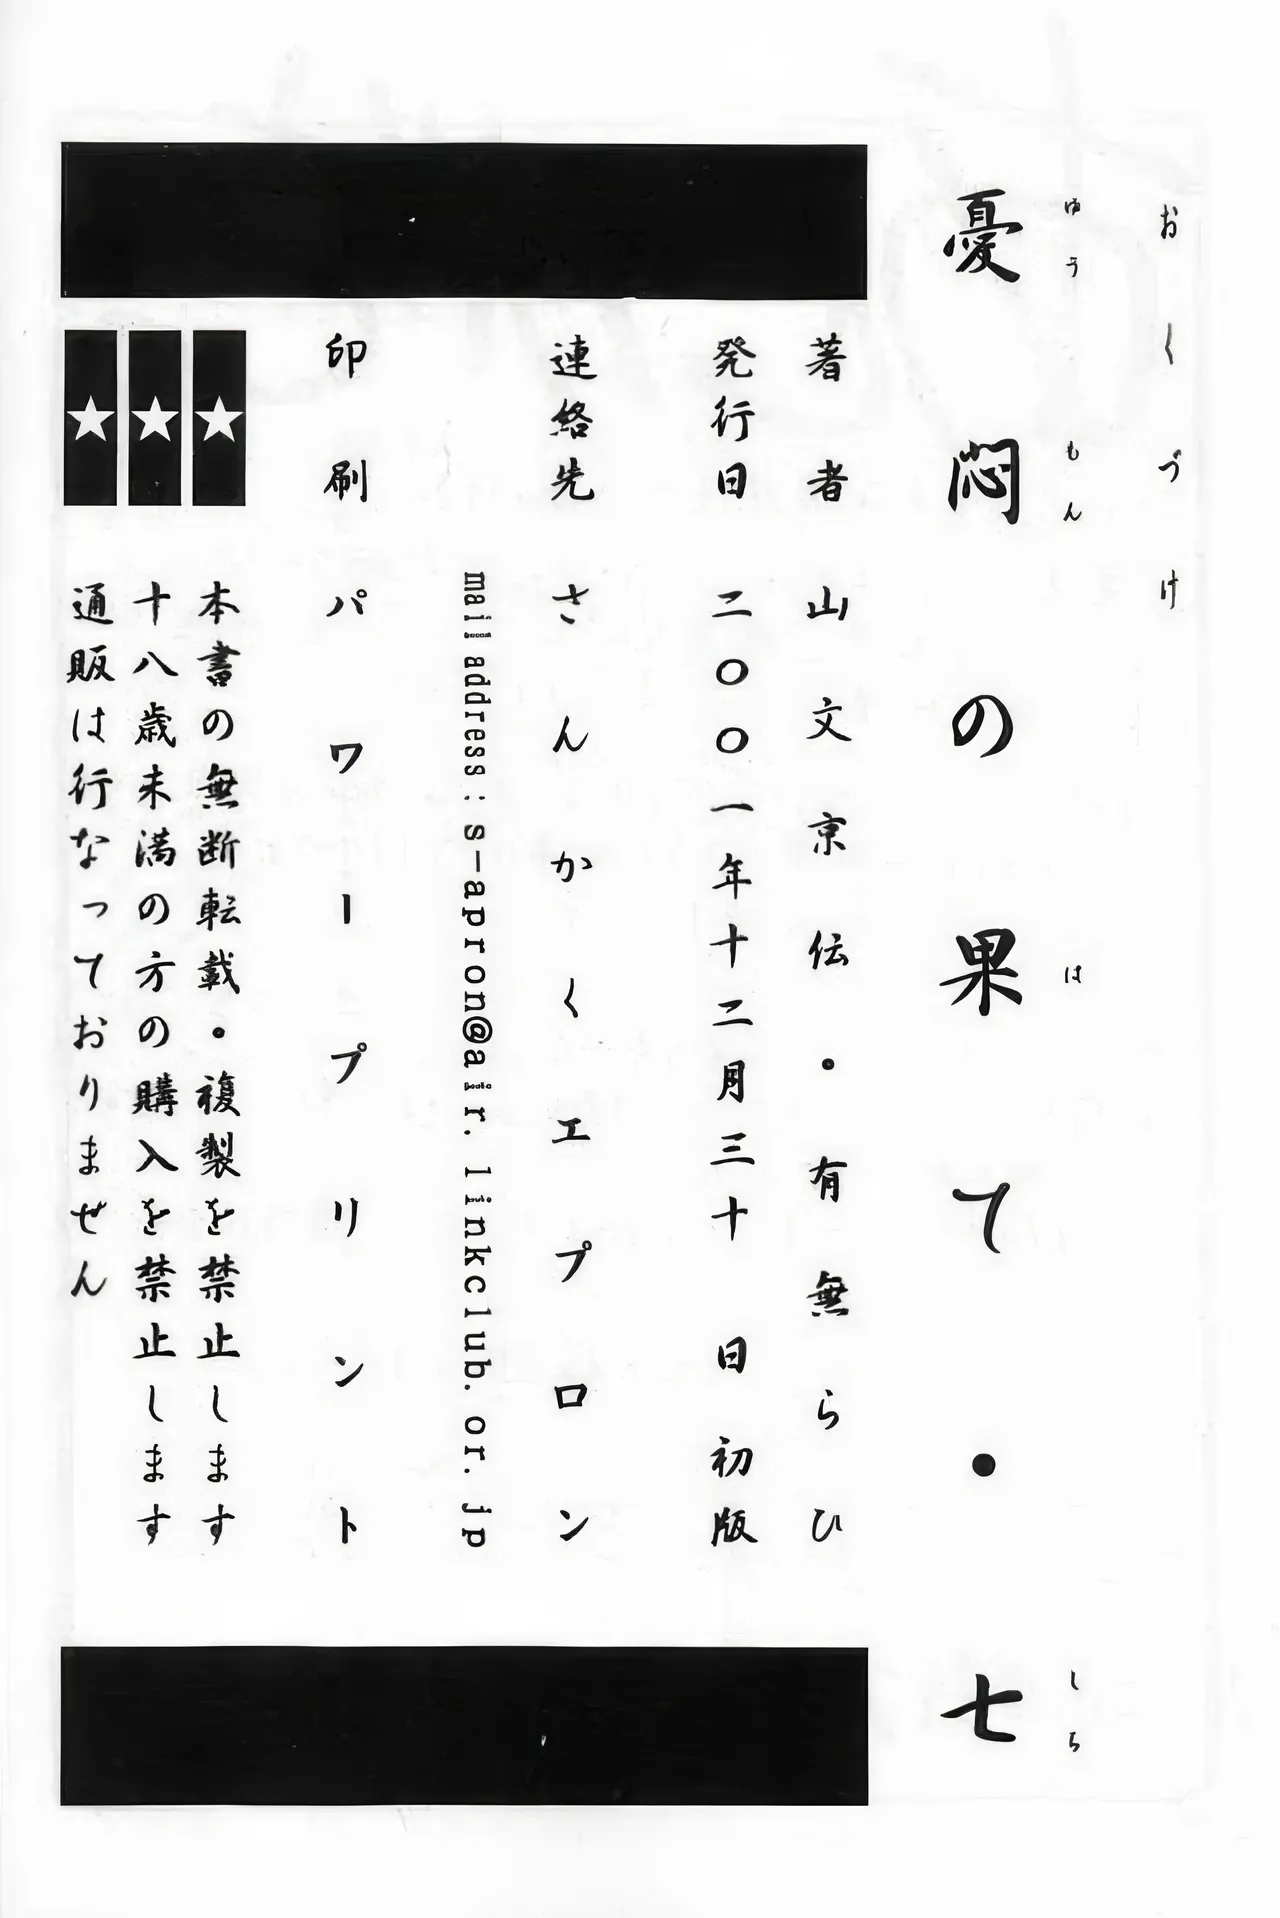 おくづけ
憂悶の果て・七
ゆうもん は しち
著者 山文京伝・有無らひ
発行日 二〇〇一年十二月三十日初版
連絡先 さんかくエプロン
mail address : s-apron@air.linkclub.or.jp
印刷 パワープリント
★ 本書の無断転載・複製を禁止します
★ 十八歳未満の方の購入を禁止します
★ 通販は行なっておりません